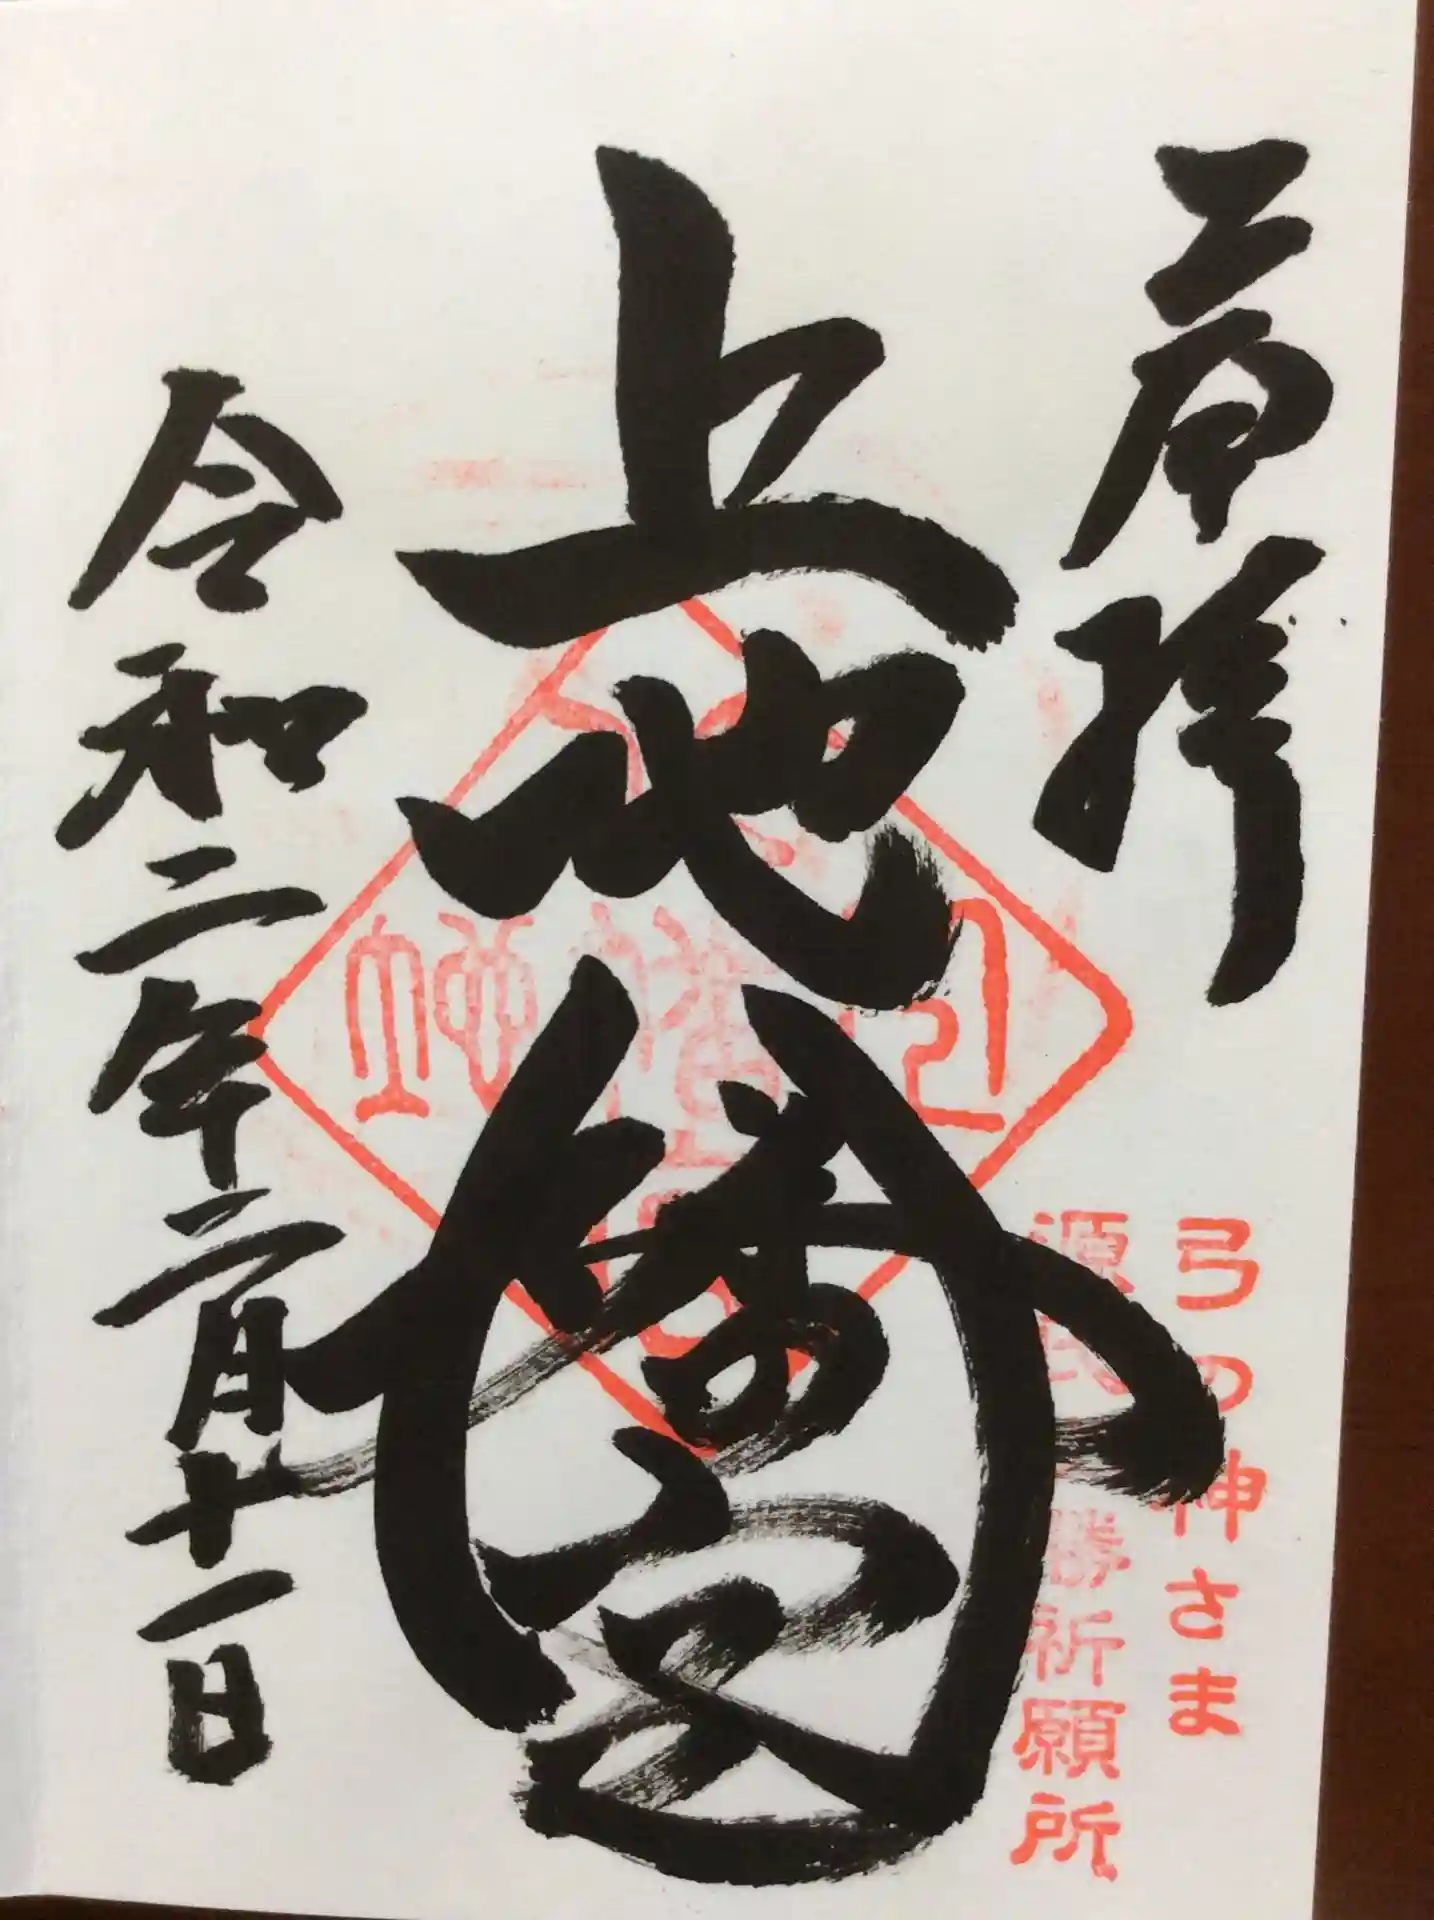 奉拝
弓の神さま
源氏 勝祈願所
上地八幡宮
令和二年二月十一日